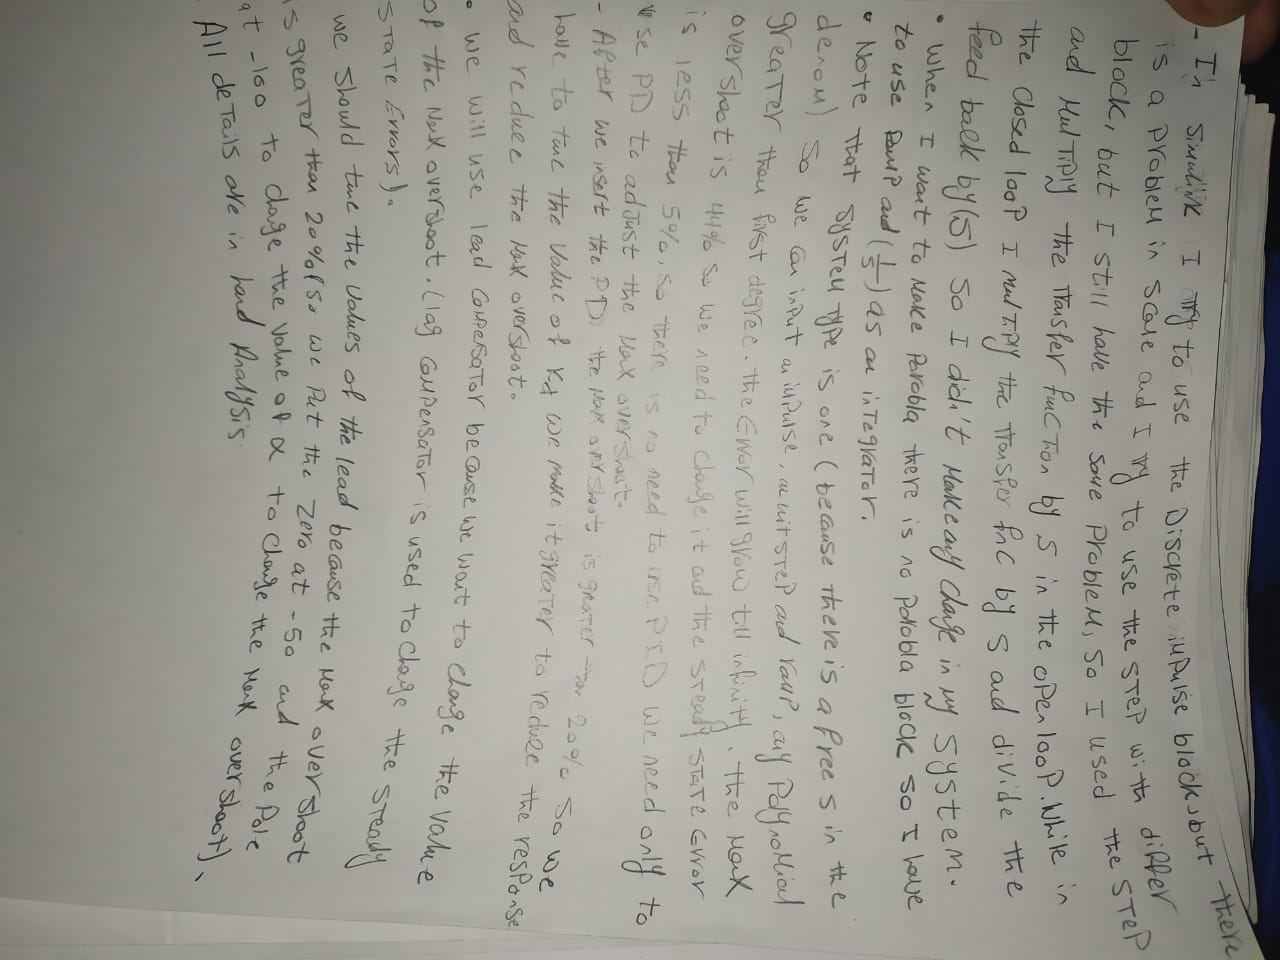 - In Simulink I try to use the Discrete impulse block, but there
is a problem in scale and I try to use the STEP with differ
block, but I still have the same problem, So I used the STEP
and MulTiply the Transfer funcTion by S in the open loop. While in
the Closed loop I mulTiply the Transfer fnc by S and divide the
feed back by (S) So I didn't Make any change in my system.
• When I want to Make Parobla there is no Porobla block so I have
to use Ramp and (1/S) as an inTegraTor.
• Note that system Type is one (because there is a free s in the
denom) So we can input an impulse, a unit STEP and ramp, any Polynomial
greaTer than first degree. the Error will grow till infinity. The Max
overshoot is 44% So we need to change it and the STeady STaTe Error
is less than 5%, So There is no need to use PID we need only to
use PD to adjust the Max overshoot.
- After we insert the PD the Max overshoot is greater than 20% So we
have to tune the Value of Kd we make it greaTer to reduce the response
and reduce the Max overshoot.
• we will use lead CompensaTor because we want to change the value
of the Max overshoot. (lag CompensaTor is used to Chage the STeady
STATE Errors).
we Should tune the Values of the lead because the Max over shoot
is greaTer than 20% (So we Put the Zero at -50 and the Pole
at -100 to chage the Value of α to Change the Max overshoot).
. All deTails are in hand Analysis